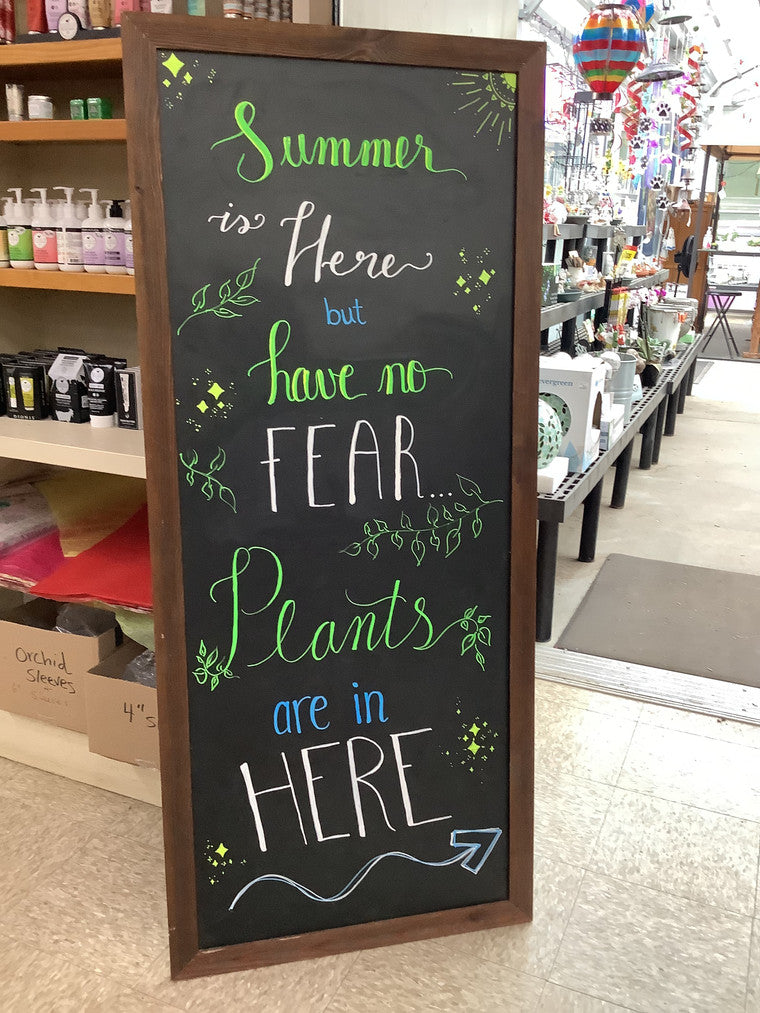 Summer
is Here
but
have no
FEAR...
Plants
are in
HERE
Orchid
Sleeves
4" S
evergreen